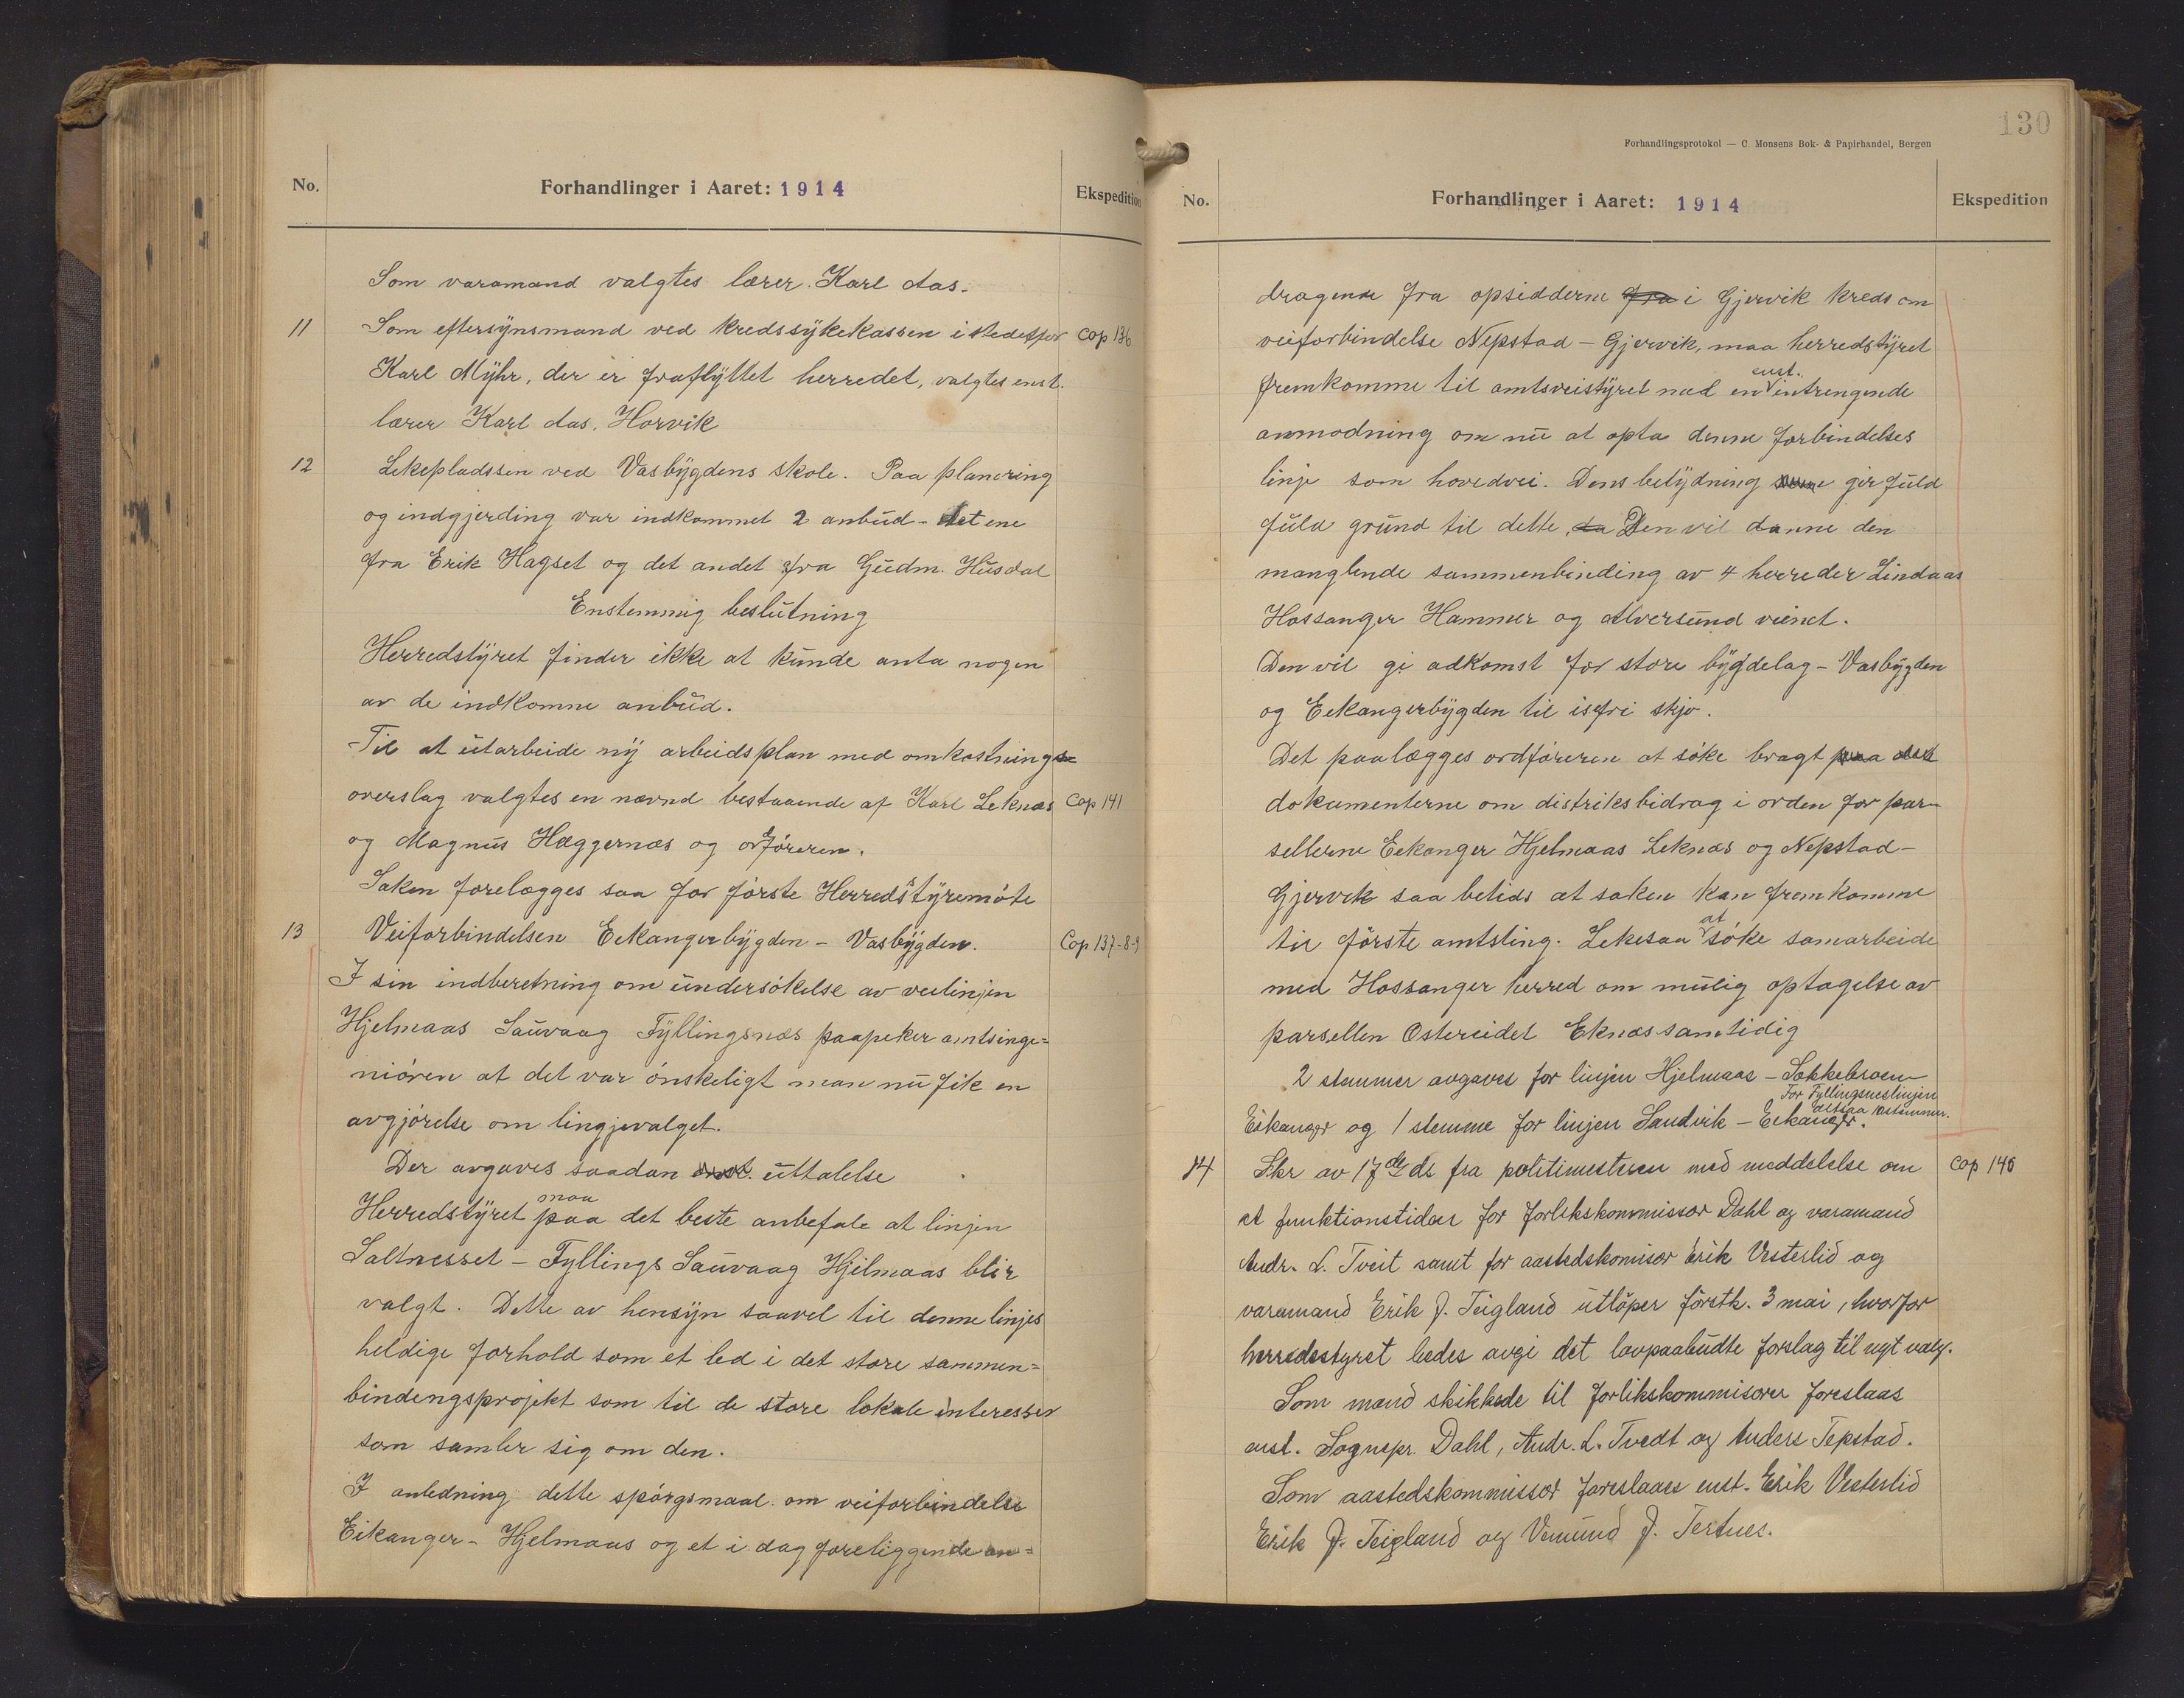 No.
Forhandlinger i Aaret: 1914
Ekspedition
Som varamand valgtes lærer Karl Aas.
11 Som eftersynsmand ved kredssykekassen istedetfor Cop 136
Karl Myhr, der er fraflyttet herredet, valgtes enst.
lærer Karl Aas, Horvik
12 Lekepladssen ved Vasbygdens skole. Paa planering
og indgjerding var indkommet 2 anbud - det ene
fra Erik Hagset og det andet fra Gudm. Husdal
Enstemmig beslutning
Herredstyret finder ikke at kunde anta nogen
av de indkomne anbud.
Til at utarbeide ny arbeidsplan med omkostnings=
overslag valgtes en nævnd bestaaende af Karl Leknæs Cop 141
og Magnus Hæggernæs og orføreren.
Saken forelægges saa for første Herredsstyremøte
13 Veiforbindelsen Eekangerbygden - Vasbygden. Cop 137-8-9
I sin indberetning om undersøkelse av veilinjen
Hjelmaas Sauvaag Fyllingsnæs paapeker amtsinge=
niøren at det var ønskeligt man nu fik en
avgjørelse om lingjevalget.
Der avgaves saadan enst. uttalelse
Herredstyret maa paa det beste anbefale at linjen
Saltnesset - Fyllings Sauvaag Hjelmaas blir
valgt. Dette av hensyn saavel til denne linjes
heldige forhold som et led i det store sammen=
bindingsprojekt som til de store lokale interesser
som samler sig om den.
I anledning dette spørgsmaal om veiforbindelse
Eikanger - Hjelmaas og et i dag foreliggende an=
130
Forhandlingsprotokol — C. Monsens Bok- & Papirhandel, Bergen
No.
Forhandlinger i Aaret: 1914
Ekspedition
dragende fra opsidderne fra i Gjervik kreds om
veiforbindelse Nepstad - Gjervik, maa herredstyret
fremkomme til amtsveistyret med en enst. intrengende
anmodning om nu at opta denne forbindelses
linje som hovedvei. Dens betydning gir fuld
fuld grund til dette, da Den vil danne den
manglende sammenbinding av 4 herreder Lindaas
Hossanger Hammer og Alversund veinet.
Den vil gi adkomst for store bygdelag - Vasbygden
og Eekangerbygden til isfri skjø.
Det paalægges ordføreren at søke bragt paa
dokumenterne om distriksbidrag i orden for par-
sellerne Eekanger Hjelmaas Leknæs og Nepstad -
Gjervik saa betids at saken kan fremkomme
til første amtsting. Lekesaa at søke samarbeide
med Hossanger herred om mulig optagelse av
parsellen Ostereidet Eknæs samtidig
2 stemmer avgaves for linjen Hjelmaas - Sökkebroen
For Fyllingsneslinjen
altsaa 10 stemmer.
Eikanger og 1 stemme for linjen Sandvik - Eekanger.
14 Skr av 17de ds fra politimesteren med meddelelse om Cop 140
at funktionstiden for forlikskommissær Dahl og varamand
Andr. L. Tveit samt for aastedskomisær Erik Vesterlid og
varamand Erik J. Teigland utløper førstk. 3 mai, hvorfor
herredsstyret bedes avgi det lovpaabudte forslag til nyt valg.
Som mænd skikkede til forlikskommisærer foreslaas
enst. Sognepr. Dahl, Andr. L. Tvedt og Anders Tepstad.
Som aastedskommissær foreslaaes enst. Erik Vesterlid
Erik J. Teigland og Vemund J. Tertnes.